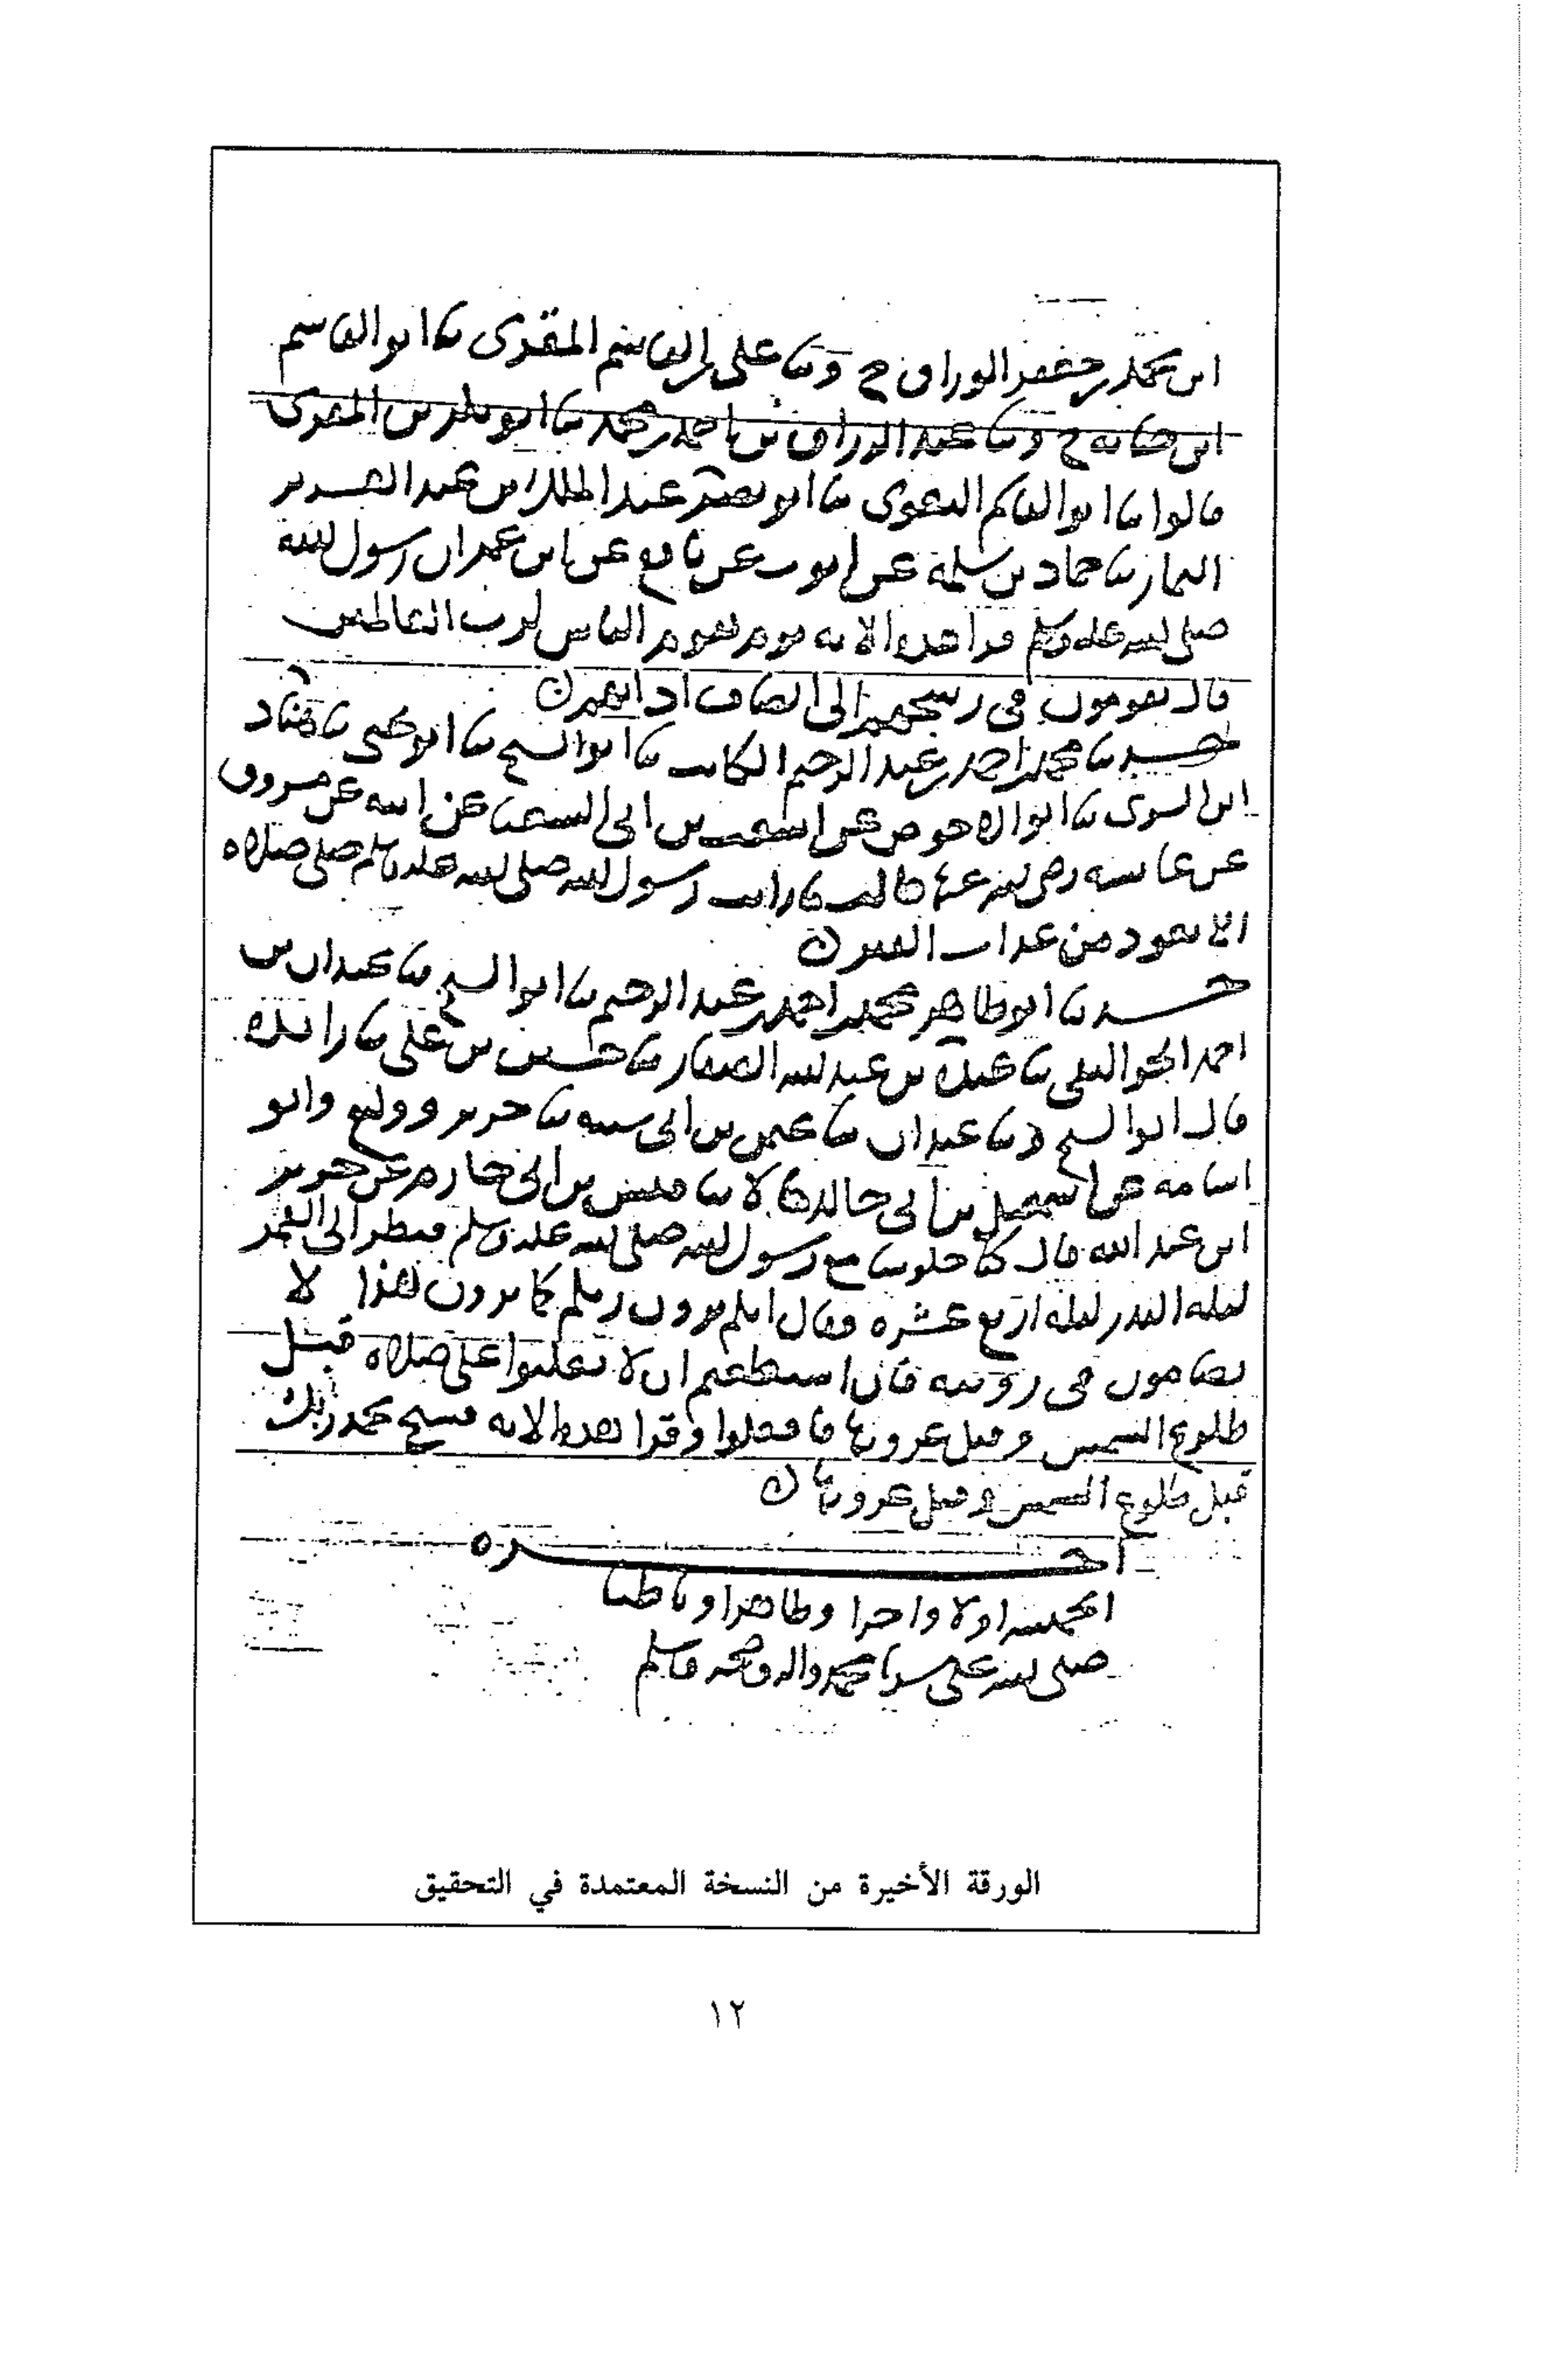 ابن محمد بن جعفر الوراق ح وثنا علي بن القاسم المقرى ثنا ابو القاسم
ابن حبابه ح وثنا عبد الرزاق بن احمد بن محمد ثنا ابو بكر بن المقرى
قالوا ثنا ابو القاسم البغوى ثنا ابو نصر عبد الملك ابن عبد العزيز
التمار ثنا حماد بن سلمة عن ايوب عن نافع عن ابن عمر ان رسول الله
صلى الله عليه وسلم قرا هذه الايه يوم يقوم الناس لرب العالمين
قال يقومون في رشحهم الى انصاف اذانهم ن
حدثنا محمد بن احمد بن عبد الرحيم الكاتب ثنا ابو الشيخ ثنا ابو يحيى ثنا هناد
ابن السرى ثنا ابو الاحوص عن اشعث بن ابى الشعثا عن ابيه عن مسروق
عن عايشه رضى الله عنها قالت ما رايت رسول الله صلى الله عليه وسلم صلى صلاه
الا تعوذ من عذاب القبر ن
حدثنا ابو طاهر محمد بن احمد بن عبد الرحيم ثنا ابو الشيخ ثنا عبدان بن
احمد الجواليقى ثنا عبدة بن عبد الله الصفار ثنا حسين بن على ثنا زائدة
قال ابو الشيخ وثنا عبدان ثنا عثمن بن ابى شيبه ثنا جرير ووكيع وابو
اسامه عن اسمعيل بن ابى خالد قالا ثنا قيس بن ابى حازم عن جرير
ابن عبد الله قال كنا جلوسا مع رسول الله صلى الله عليه وسلم فنظر الى القمر
ليله البدر ليله اربع عشره فقال انكم ترون ربكم كما ترون هذا لا
تضامون في رؤيته فان استطعتم ان لا تغلبوا على صلاه قبل
طلوع الشمس وقبل غروبها فافعلوا وقرا هذه الايه فسبح بحمد ربك
قبل طلوع الشمس وقبل غروبها ن
اخره
الحمد لله اولا واخرا وظاهرا وباطنا
صلى الله على سيدنا محمد واله وصحبه وسلم
الورقة الأخيرة من النسخة المعتمدة في التحقيق
١٢